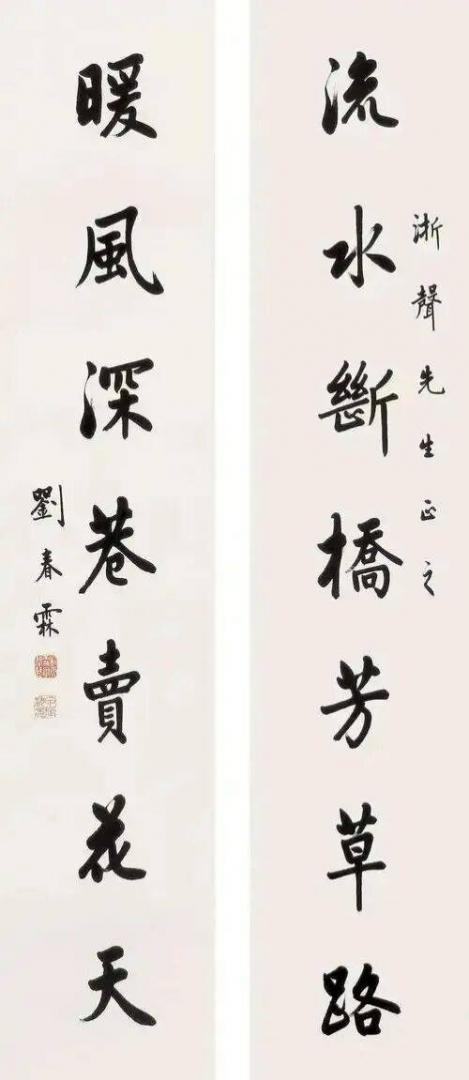 流水斷橋芳草路
淅聲先生正之
暖風深巷賣花天
劉春霖